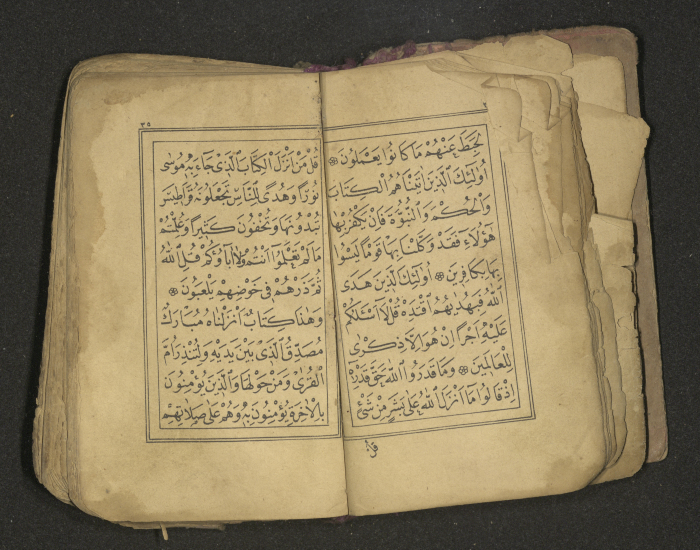 لَحَبِطَ عَنْهُمْ مَا كَانُوا يَعْمَلُونَ
أُولَئِكَ الَّذِينَ اٰتَيْنَاهُمُ الْكِتَابَ
وَالْحُكْمَ وَالنُّبُوَّةَ فَاِنْ يَكْفُرْ بِهَا
هٰؤُلَاءِ فَقَدْ وَكَّلْنَا بِهَا قَوْمًا لَيْسُوا
بِهَا بِكَافِرِينَ اُولَئِكَ الَّذِينَ هَدَى
اللّٰهُ فَبِهُدٰيهُمُ اقْتَدِهْ قُلْ لَا اَسْئَلُكُمْ
عَلَيْهِ اَجْرًا اِنْ هُوَ اِلَّا ذِكْرٰى
لِلْعَالَمِينَ وَمَا قَدَرُوا اللّٰهَ حَقَّ قَدْرِهِ
اِذْ قَالُوا مَا اَنْزَلَ اللّٰهُ عَلٰى بَشَرٍ مِنْ شَيْءٍ
قُلْ
٣٥
قُلْ مَنْ اَنْزَلَ الْكِتَابَ الَّذِى جَاءَ بِهِ مُوسٰى
نُورًا وَهُدًى لِلنَّاسِ تَجْعَلُونَهُ قَرَاطِيسَ
تُبْدُونَهَا وَتُخْفُونَ كَثِيرًا وَعُلِّمْتُمْ
مَا لَمْ تَعْلَمُوا اَنْتُمْ وَلَا اٰبَاؤُكُمْ قُلِ اللّٰهُ
ثُمَّ ذَرْهُمْ فِى خَوْضِهِمْ يَلْعَبُونَ
وَهٰذَا كِتَابٌ اَنْزَلْنَاهُ مُبَارَكٌ
مُصَدِّقُ الَّذِى بَيْنَ يَدَيْهِ وَلِتُنْذِرَ اُمَّ
الْقُرٰى وَمَنْ حَوْلَهَا وَالَّذِينَ يُؤْمِنُونَ
بِالْاٰخِرَةِ يُؤْمِنُونَ بِهِ وَهُمْ عَلٰى صَلَاتِهِمْ